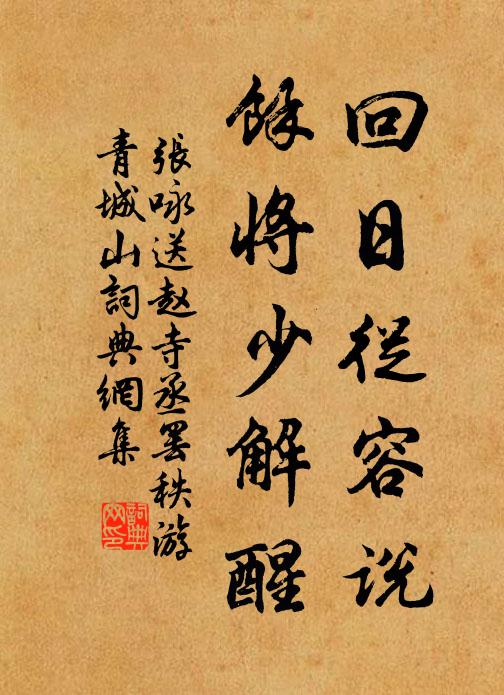 回日從容说
餘將少解醒
張咏送赵寺丞罢秩游
青城山詞典網集
詞典
网印